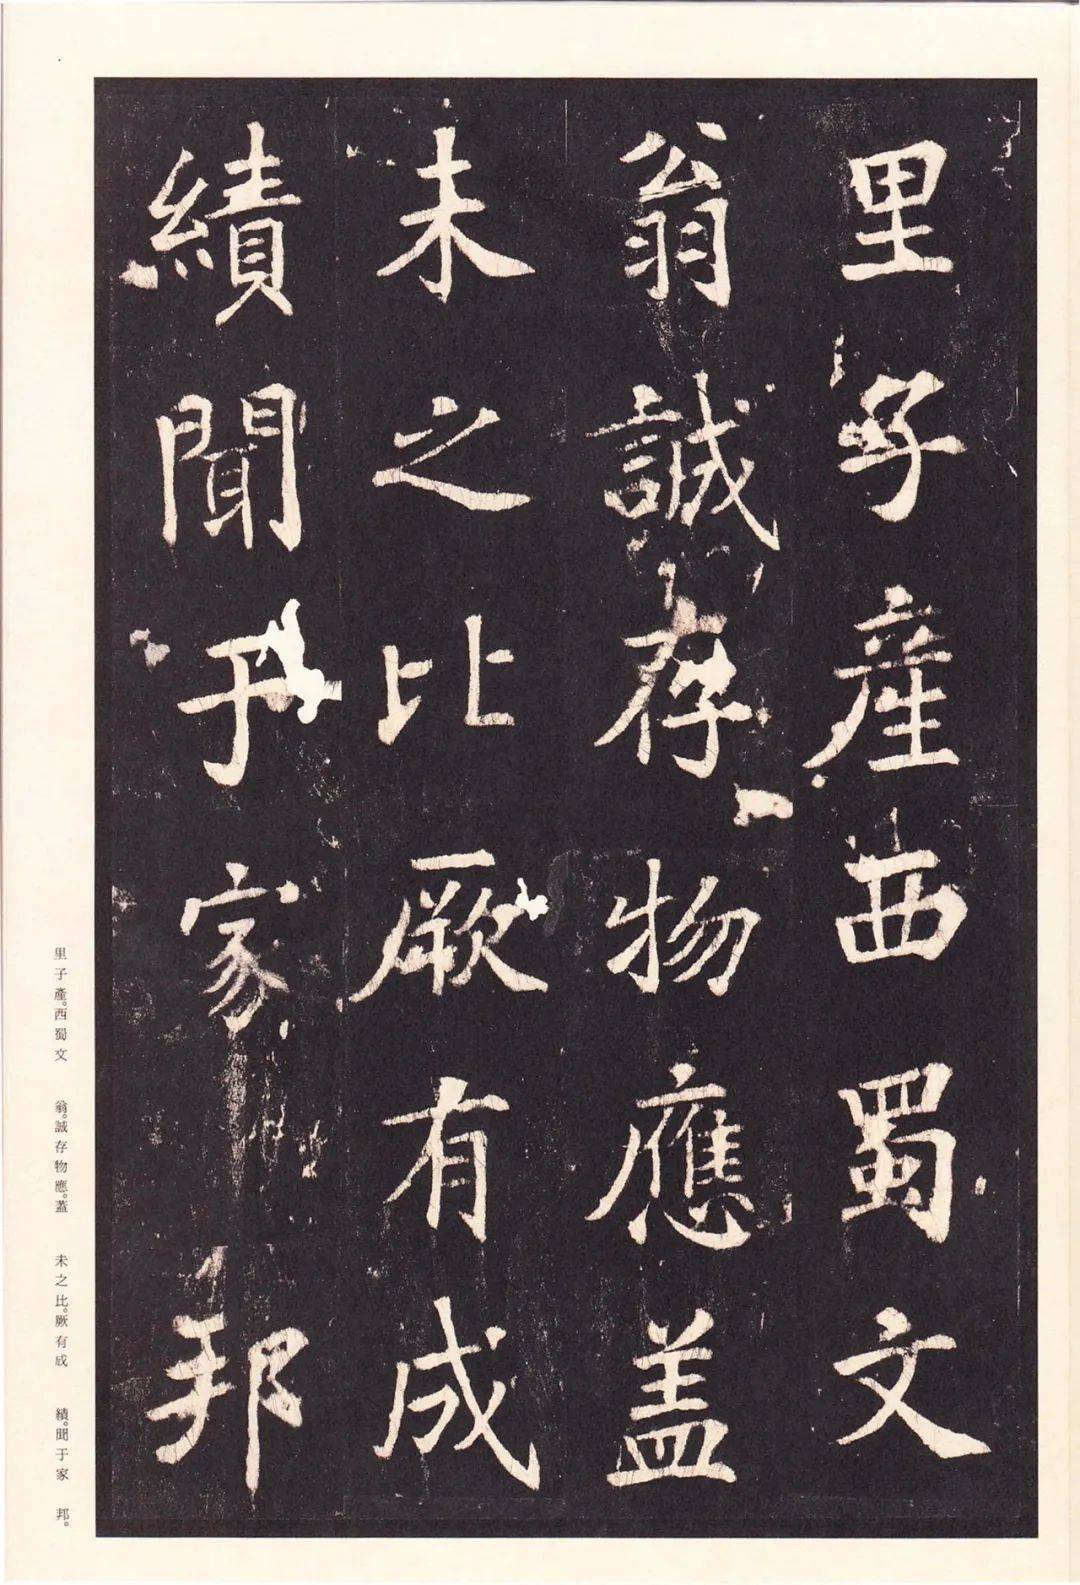 里子產西蜀文
翁誠存物應盖
未之比厥有成
績聞于家邦
里子產。西蜀文　翁。誠存物應。蓋　未之比。厥有成　績。聞于家　邦。